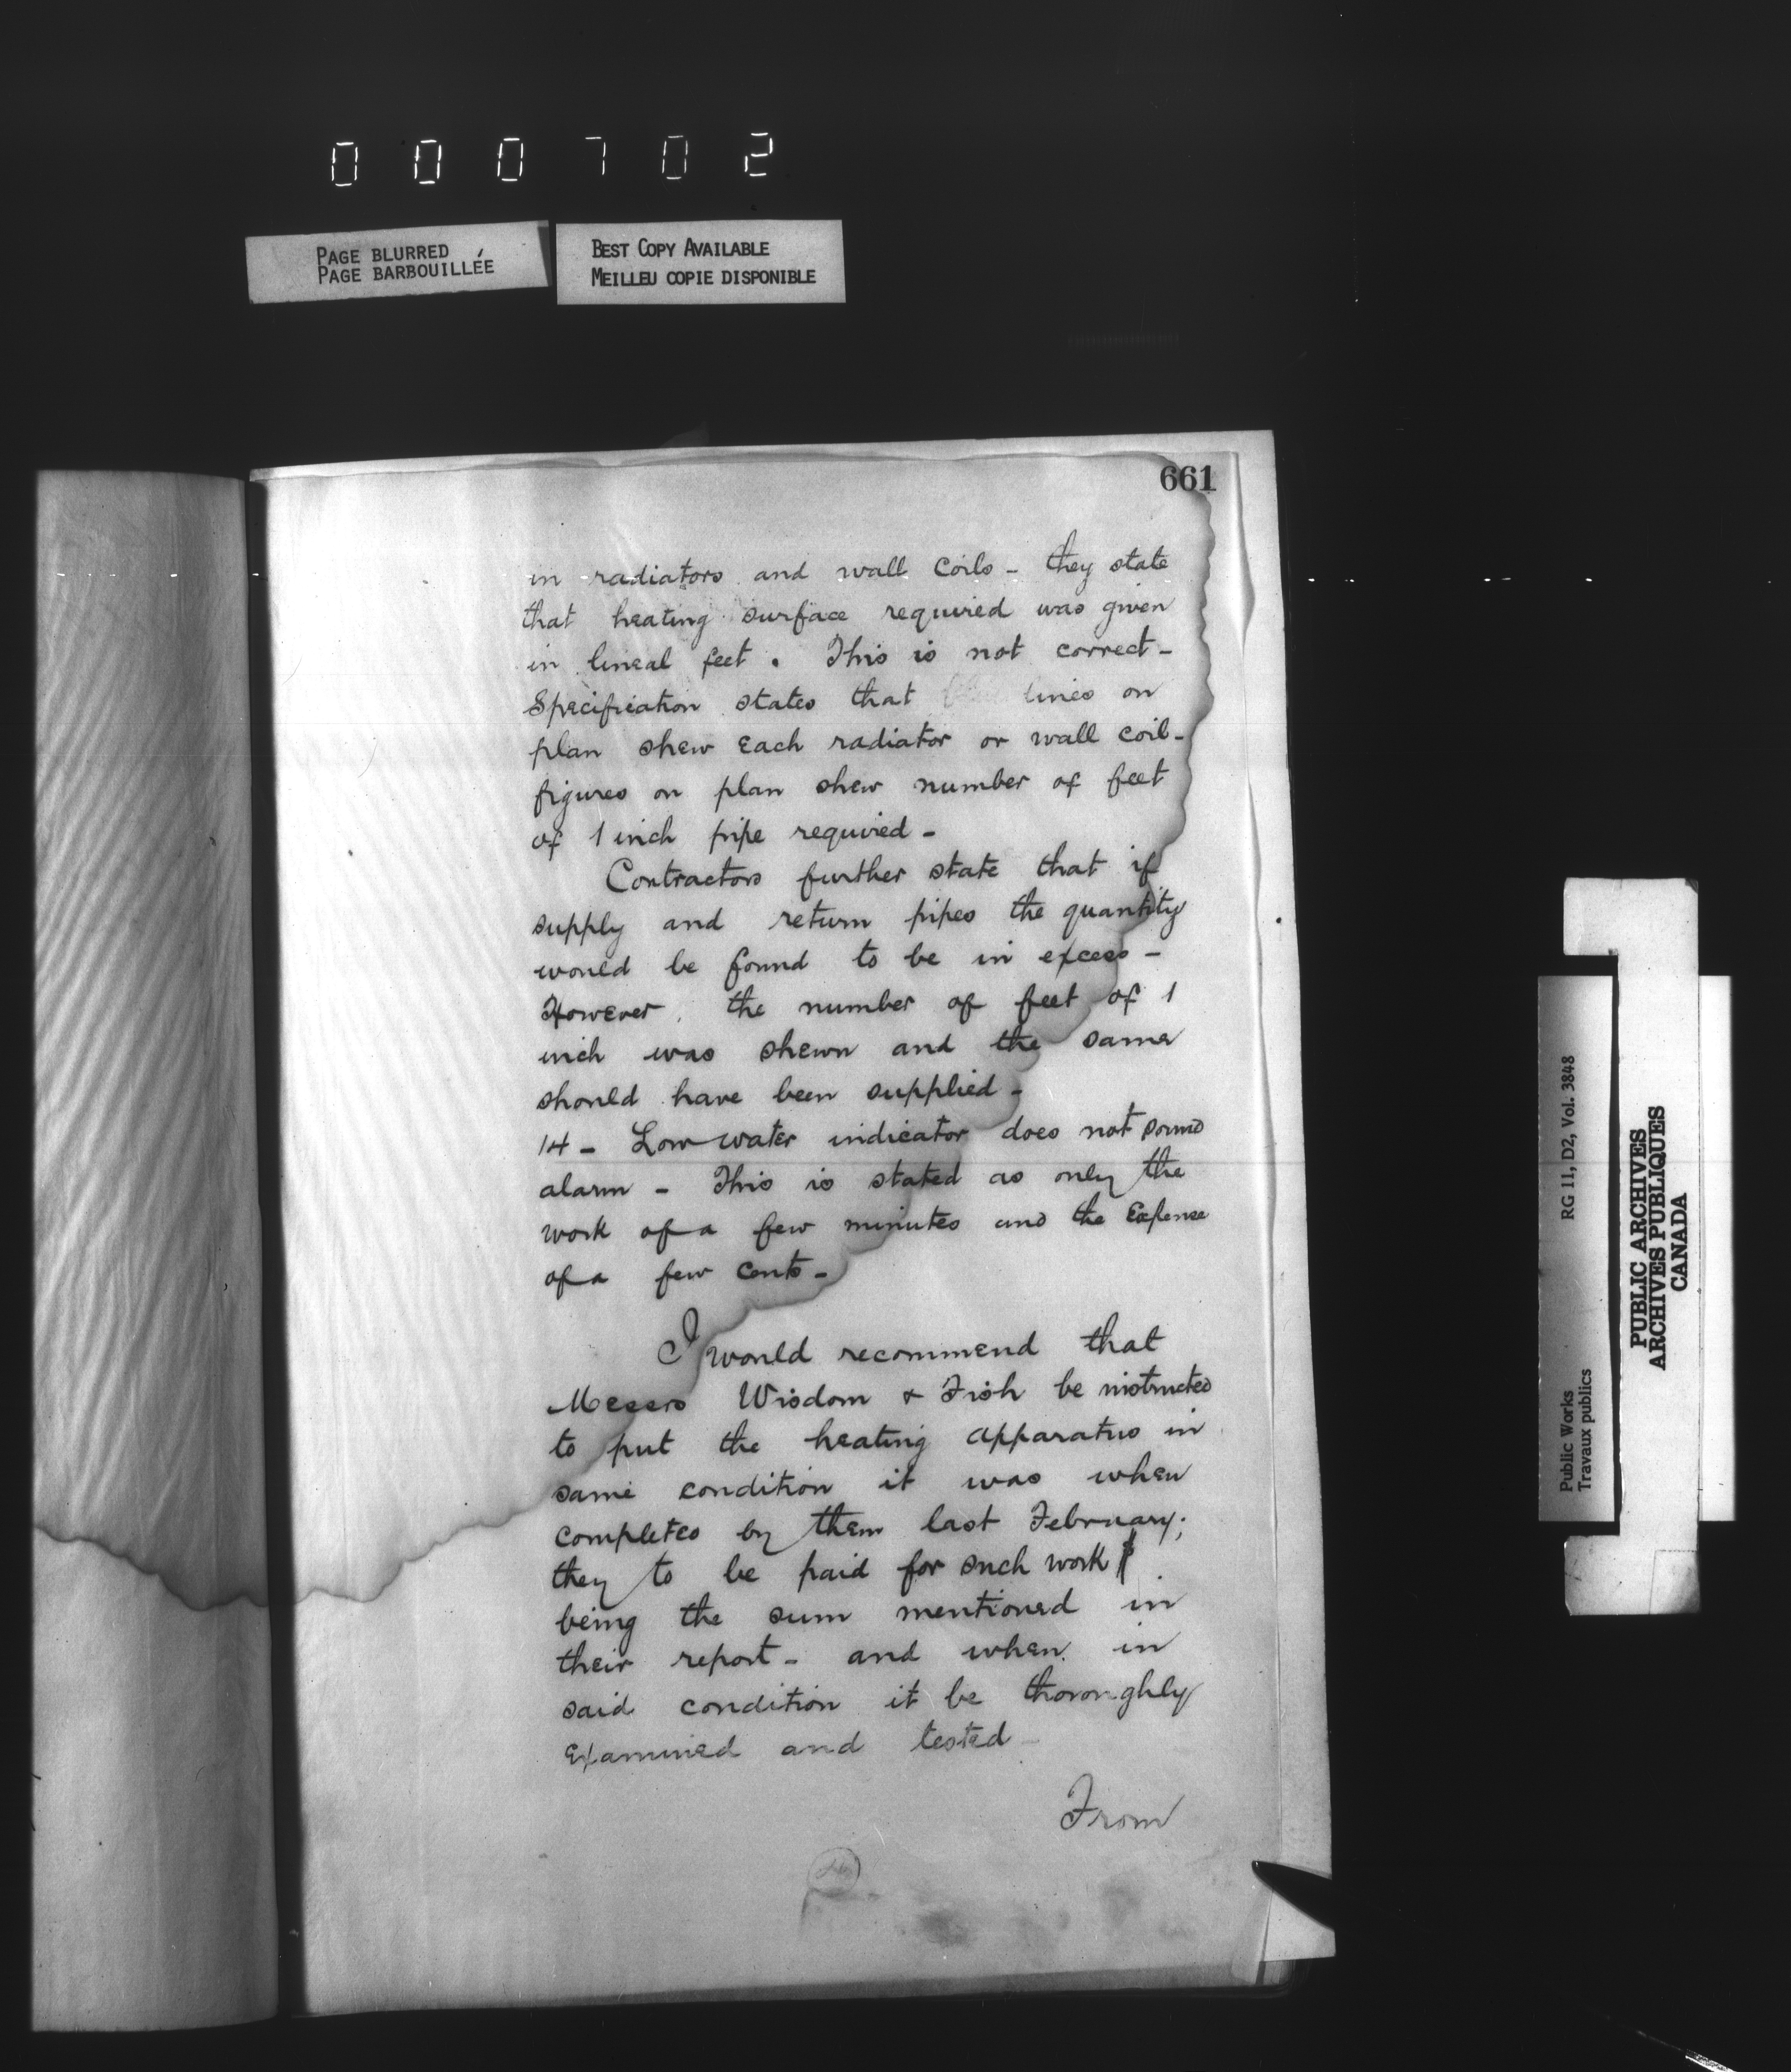 000702
PAGE BLURRED
PAGE BARBOUILLÉE
BEST COPY AVAILABLE
MEILLEU COPIE DISPONIBLE
661
in radiators and wall coils - they state
that heating surface required was given
in lineal feet. This is not correct -
Specification states that lines on
plan shew each radiator or wall coil -
figures on plan shew number of feet
of 1 inch pipe required -
Contractors further state that if
supply and return pipes the quantity
would be found to be in excess -
However, the number of feet of 1
inch was shewn and the same
should have been supplied -
14 - Low water indicator does not sound
alarm - This is stated as only the
work of a few minutes and the Expense
of a few cents -
I would recommend that
Messrs Wisdom & Fish be instructed
to put the heating apparatus in
same condition it was when
completed by them last February;
they to be paid for such work $
being the sum mentioned in
their report - and when in
said condition it be thoroughly
examined and tested -
From
Public Works
Travaux publics
RG 11, D2, Vol. 3848
PUBLIC ARCHIVES
ARCHIVES PUBLIQUES
CANADA